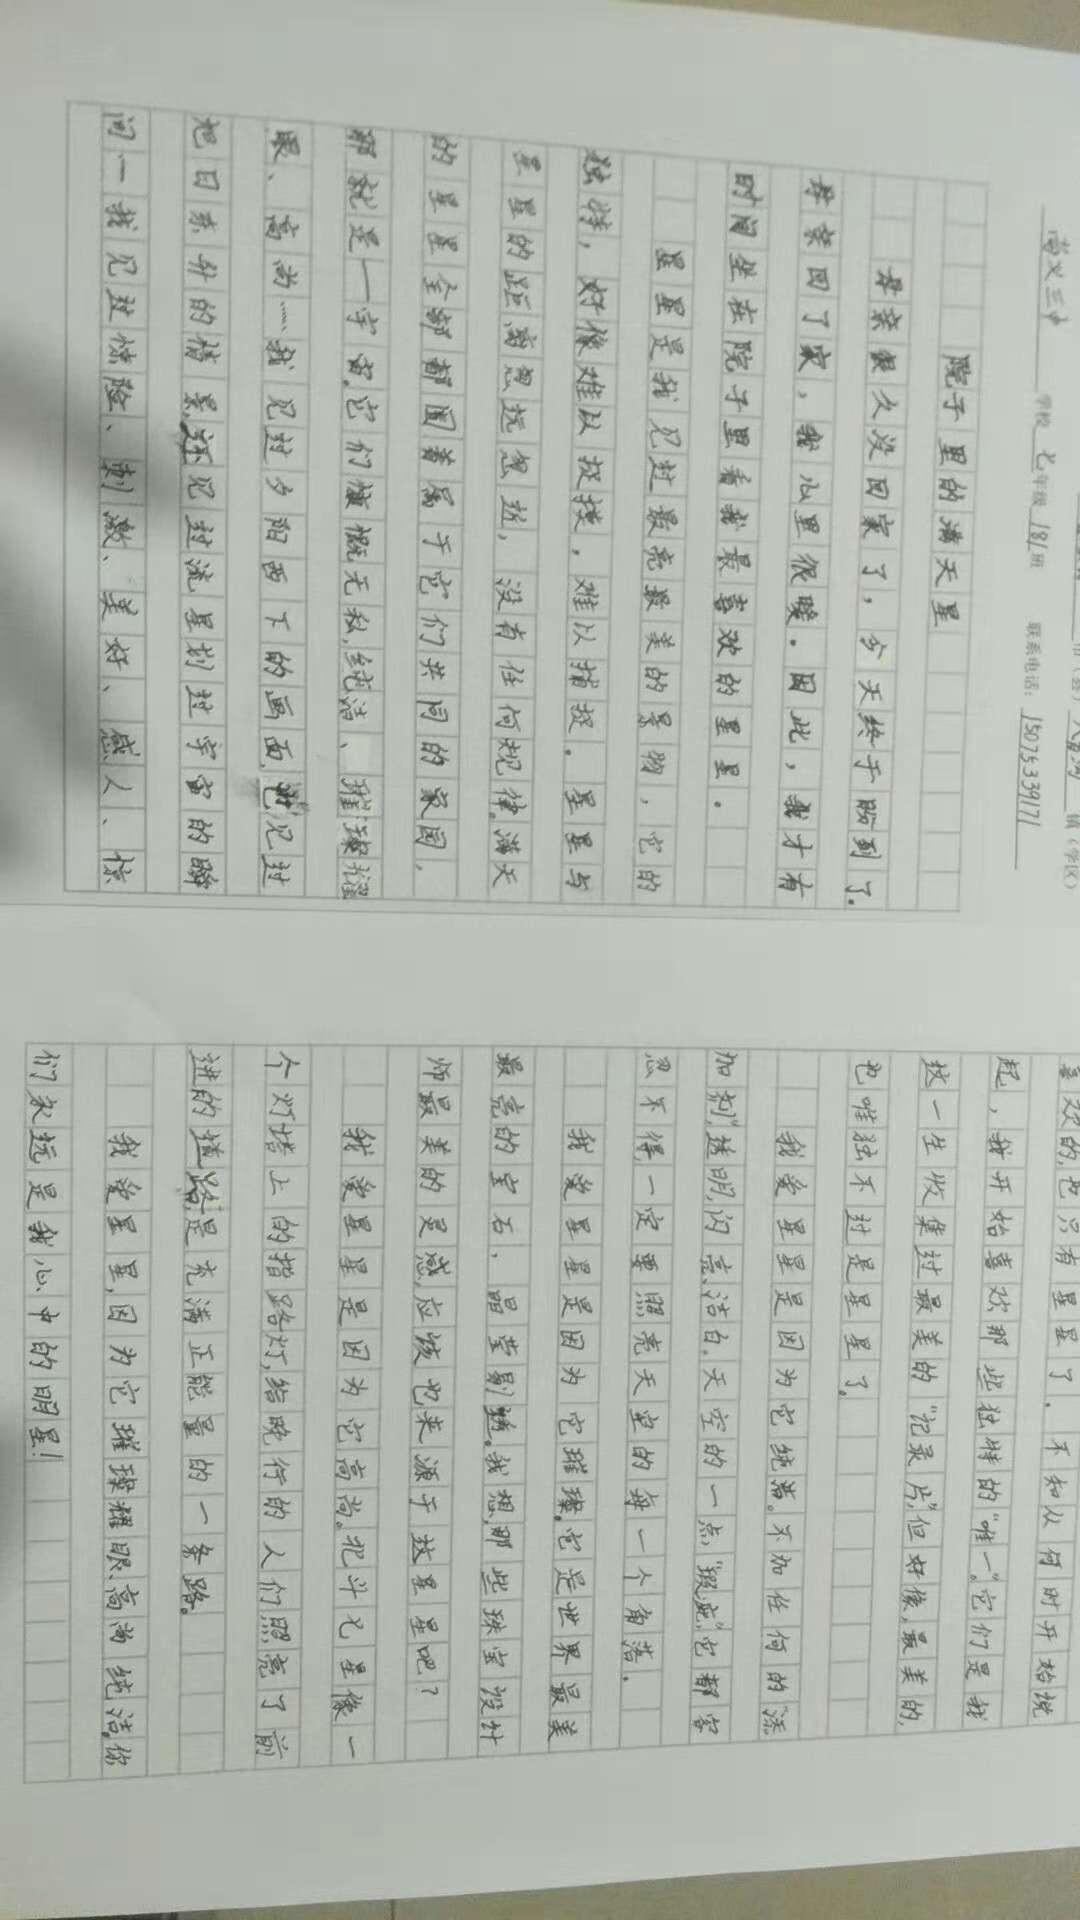 学校 七年级 181班 联系电话: 15075339171
院子里的满天星
母亲很久没回家了，今天终于盼到了。
母亲回了家，我心里很暖。因此，我才有
时间坐在院子里看我最喜欢的星星。
星星是我见过最亮最美的景物，它的
独特，好像难以捉摸，难以捕捉。星星与
星星的距离忽远忽近，没有任何规律。满天
的星星全部都围着属于它们共同的家园，
那就是一宇宙。它们慷慨无私，纯洁、璀璨耀
眼、高尚……我见过夕阳西下的画面，也见过
旭日东升的情景，还见过流星划过宇宙的瞬
间一我见过惊险、刺激、美好、感人、惊
喜欢的，也只有星星了。不知从何时开始说
起，我开始喜欢那些独特的“唯一”。它们是我
这一生收集过最美的“记录片”，但好像，最美的，
也唯独不过是星星了。
我爱星星是因为它纯洁。不加任何的“添
加剂”，透明，闪亮，洁白。天空的一点“瑕疵”，它都容
忍不得，一定要照亮天空的每一个角落。
我爱星星是因为它璀璨。它是世界最美
最亮的宝石，晶莹剔透。我想，那些珠宝设计
师最美的灵感，应该也来源于这星星吧？
我爱星星是因为它高尚。北斗七星像一
个灯塔上的指路灯，给晚行的人们照亮了前
进的道路，是充满正能量的一条路。
我爱星星，因为它璀璨耀眼、高尚纯洁。你
们永远是我心中的明星！